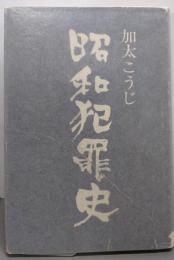 加太こうじ
昭和犯罪史